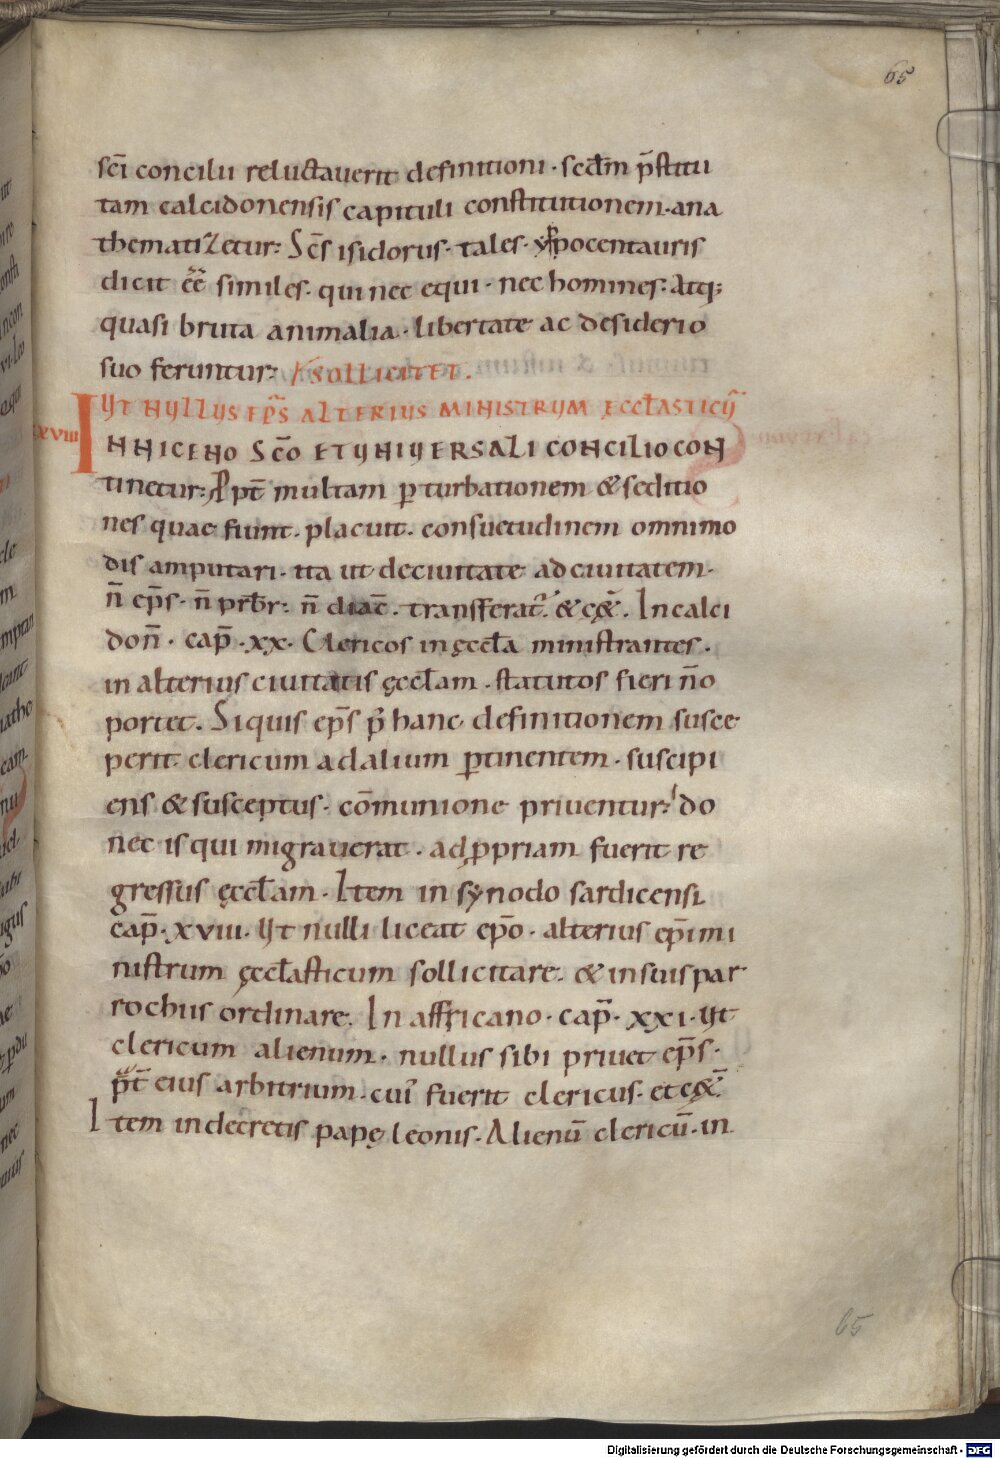 65
sc̄i concilii reluctauerit definitioni · sec̄dm p̄stitu
tam calcidonensis capituli constitutionem · ana
thematizetur: Sc̄s isidorus · tales · ypocentauris
dicit ēē similes · qui nec equi · nec homines: Atq;
quasi bruta animalia · libertate ac desiderio
suo feruntur: sollicitet.
UT NULLUS EP̄S ALTERIUS MINISTRUM ĘCCŁASTICŪ
xviii
INNICENO SC̄O ETUNIUERSALI CONCILIO CON
tinetur: Ppt̄ multam perturbationem & seditio
nes quae fiunt · placuit · consuetudinem omnimo
dis amputari · ita ut deciuitate adciuitatem ·
n̄ ep̄s · n̄ prb̄r: n̄ diac̄ · transferat̄ · & cę̄t. In calci
don̄ · cap̄ · xx · Clericos in ęccła ministrantes ·
in alterius ciuitatis ęccłam · statutos fieri n̄o
portet. Siquis ep̄s p̄ hanc definitionem susce
perit clericum adalium ꝑtinentem · suscipi
ens & susceptus · cōmunione priuentur: do
nec is qui migrauerat · adꝓpriam fuerit re
gressus ęccłam · Item in synodo sardicensi
cap̄ · xviii · Ut nulli liceat ep̄o · alterius ep̄i mi
nistrum ęccłasticum sollicitare. & insuis par
rochiis ordinare. In affricano · cap̄ · xxi · Ut
clericum alienum · nullus sibi priuet ep̄s ·
p̄t eius arbitrium · cui fuerit clericus · et cę̄t
Item indecretis papę leonis · Alienū clericū · in
65
Digitalisierung gefördert durch die Deutsche Forschungsgemeinschaft - DFG